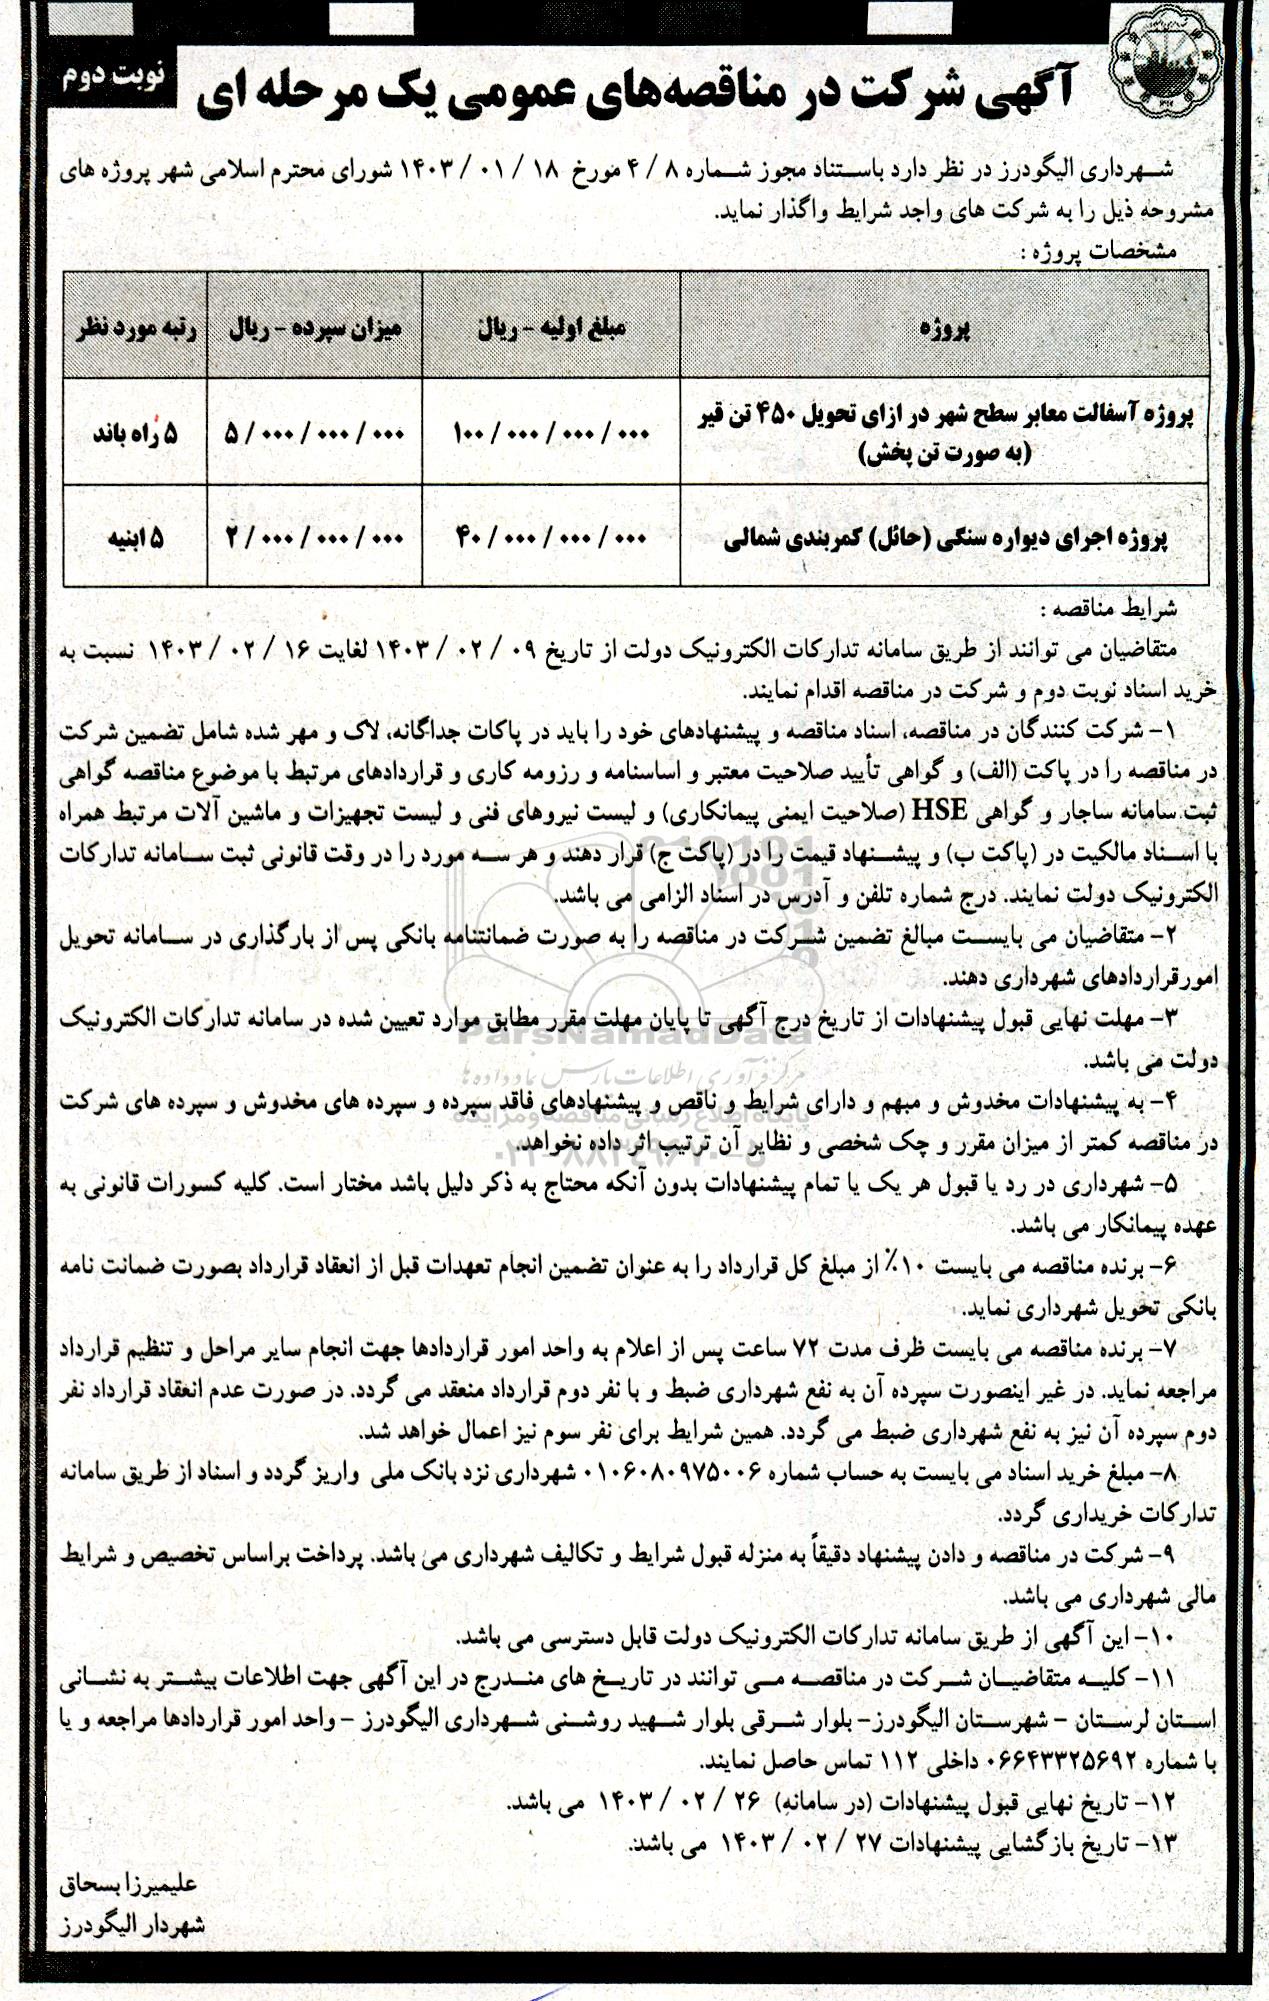 نوبت دوم
آگهی شرکت در مناقصه‌های عمومی یک مرحله ای
شهرداری الیگودرز در نظر دارد باستناد مجوز شماره ۸ / ۴ مورخ ۱۸ / ۰۱ / ۱۴۰۳ شورای محترم اسلامی شهر پروژه های
مشروحه ذیل را به شرکت های واجد شرایط واگذار نماید.
مشخصات پروژه :
پروژه	مبلغ اولیه - ریال	میزان سپرده - ریال	رتبه مورد نظر
پروژه آسفالت معابر سطح شهر در ازای تحویل ۴۵۰ تن قیر
(به صورت تن پخش)	۱۰۰/۰۰۰/۰۰۰/۰۰۰	۵/۰۰۰/۰۰۰/۰۰۰	۵ راه باند
پروژه اجرای دیواره سنگی (حائل) کمربندی شمالی	۴۰/۰۰۰/۰۰۰/۰۰۰	۲/۰۰۰/۰۰۰/۰۰۰	۵ ابنیه
شرایط مناقصه :
متقاضیان می توانند از طریق سامانه تدارکات الکترونیک دولت از تاریخ ۰۹ / ۰۲ / ۱۴۰۳ لغایت ۱۶ / ۰۲ / ۱۴۰۳ نسبت به
خرید اسناد نوبت دوم و شرکت در مناقصه اقدام نمایند.
۱- شرکت کنندگان در مناقصه، اسناد مناقصه و پیشنهادهای خود را باید در پاکات جداگانه، لاک و مهر شده شامل تضمین شرکت
در مناقصه را در پاکت (الف) و گواهی تأیید صلاحیت معتبر و اساسنامه و رزومه کاری و قراردادهای مرتبط با موضوع مناقصه گواهی
ثبت سامانه ساجار و گواهی HSE (صلاحیت ایمنی پیمانکاری) و لیست نیروهای فنی و لیست تجهیزات و ماشین آلات مرتبط همراه
با اسناد مالکیت در (پاکت ب) و پیشنهاد قیمت را در (پاکت ج) قرار دهند و هر سه مورد را در وقت قانونی ثبت سامانه تدارکات
الکترونیک دولت نمایند. درج شماره تلفن و آدرس در اسناد الزامی می باشد.
۲- متقاضیان می بایست مبالغ تضمین شرکت در مناقصه را به صورت ضمانتنامه بانکی پس از بارگذاری در سامانه تحویل
امورقراردادهای شهرداری دهند.
۳- مهلت نهایی قبول پیشنهادات از تاریخ درج آگهی تا پایان مهلت مقرر مطابق موارد تعیین شده در سامانه تدارکات الکترونیک
ParsNamadData
دولت می باشد.
مرکز فرآوری اطلاعات پارس نماد داده ها
۴- به پیشنهادات مخدوش و مبهم و دارای شرایط و ناقص و پیشنهادهای فاقد سپرده و سپرده های مخدوش و سپرده های شرکت
پایگاه اطلاع رسانی مناقصه و مزایده
در مناقصه کمتر از میزان مقرر و چک شخصی و نظایر آن ترتیب اثر داده نخواهد.
۵- شهرداری در رد یا قبول هر یک یا تمام پیشنهادات بدون آنکه محتاج به ذکر دلیل باشد مختار است. کلیه کسورات قانونی به
عهده پیمانکار می باشد.
۶- برنده مناقصه می بایست ۱۰٪ از مبلغ کل قرارداد را به عنوان تضمین انجام تعهدات قبل از انعقاد قرارداد بصورت ضمانت نامه
بانکی تحویل شهرداری نماید.
۷- برنده مناقصه می بایست ظرف مدت ۷۲ ساعت پس از اعلام به واحد امور قراردادها جهت انجام سایر مراحل و تنظیم قرارداد
مراجعه نماید. در غیر اینصورت سپرده آن به نفع شهرداری ضبط و با نفر دوم قرارداد منعقد می گردد. در صورت عدم انعقاد قرارداد نفر
دوم سپرده آن نیز به نفع شهرداری ضبط می گردد. همین شرایط برای نفر سوم نیز اعمال خواهد شد.
۸- مبلغ خرید اسناد می بایست به حساب شماره ۰۱۰۶۰۸۰۹۷۵۰۰۶ شهرداری نزد بانک ملی واریز گردد و اسناد از طریق سامانه
تدارکات خریداری گردد.
۹- شرکت در مناقصه و دادن پیشنهاد دقیقاً به منزله قبول شرایط و تکالیف شهرداری می باشد. پرداخت براساس تخصیص و شرایط
مالی شهرداری می باشد.
۱۰- این آگهی از طریق سامانه تدارکات الکترونیک دولت قابل دسترسی می باشد.
۱۱- کلیه متقاضیان شرکت در مناقصه می توانند در تاریخ های مندرج در این آگهی جهت اطلاعات بیشتر به نشانی
استان لرستان - شهرستان الیگودرز- بلوار شرقی بلوار شهید روشنی شهرداری الیگودرز - واحد امور قراردادها مراجعه و یا
با شماره ۰۶۶۴۳۳۲۵۶۹۲ داخلی ۱۱۲ تماس حاصل نمایند.
۱۲- تاریخ نهایی قبول پیشنهادات (در سامانه) ۲۶ / ۰۲ / ۱۴۰۳ می باشد.
۱۳- تاریخ بازگشایی پیشنهادات ۲۷ / ۰۲ / ۱۴۰۳ می باشد.
علیمیرزا بسحاق
شهردار الیگودرز